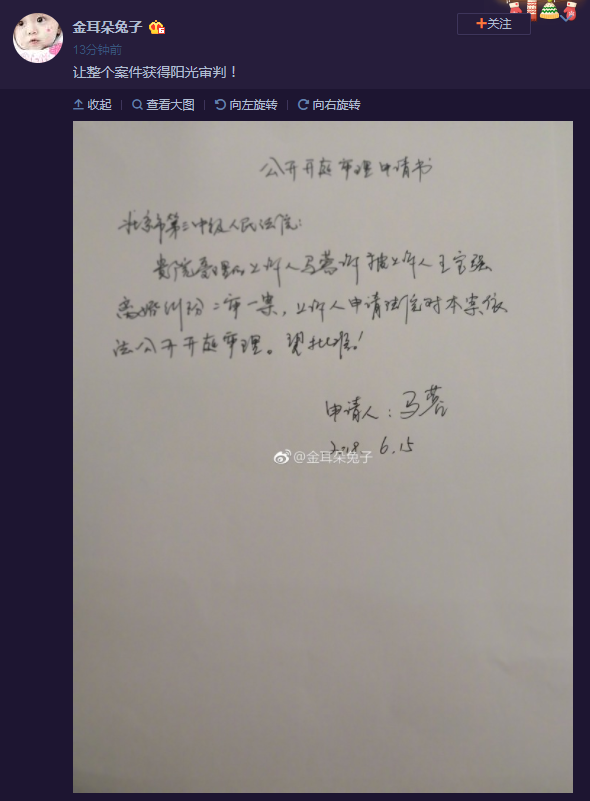 金耳朵兔子
+关注
13分钟前
让整个案件获得阳光审判！
收起
查看大图
向左旋转
向右旋转
公开开庭审理申请书
北京市第三中级人民法院：
贵院受理的上诉人马蓉诉被上诉人王宝强
离婚纠纷二审一案，上诉人申请法院对本案依
法公开开庭审理。望批准！
申请人：马蓉
2018 6.15
@金耳朵兔子